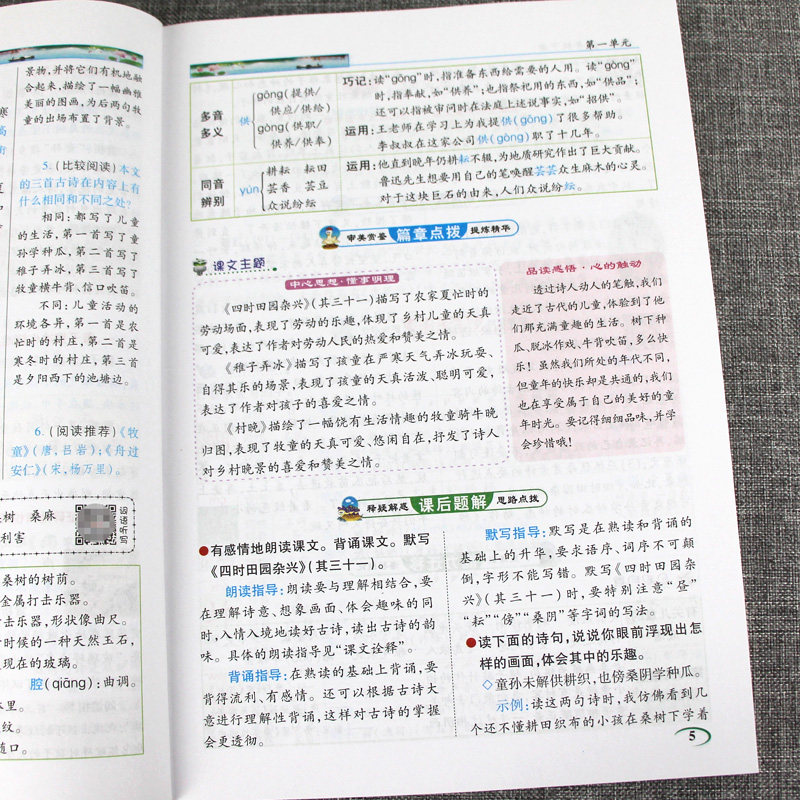 景物,并将它们有机地融
合起来,描绘了一幅幽雅
美丽的图画,为后两句牧
童的出场布置了背景。
5.(比较阅读)本文
的三首古诗在内容上有
什么相同和不同之处?
相同:都写了儿童
的生活,第一首写了童
孙学种瓜,第二首写了
稚子弄冰,第三首写了
牧童横牛背、信口吹笛。
不同:儿童活动的
环境各异,第一首是农
忙时的村庄,第二首是
寒冬时的村庄,第三首
是夕阳西下的池塘边。
6.(阅读推荐)《牧
童》(唐,吕岩);《舟过
安仁》(宋,杨万里)。
树 桑麻
利害
桑树的树荫。
金属打击乐器。
击乐器,形状像曲尺。
时候的一种天然玉石,
现在的玻璃。
腔(qiāng):曲调。
体里。
纹。
随口。
第一单元
多音
多义
供
gōng(提供/
供应/供给)
gòng(供职/
供养/供奉)
巧记:读“gōng”时,指准备东西给需要的人用。读“gòng”
时,指奉献,如“供养”;也指祭祀用的东西,如“供品”;
还可以指被审问时在法庭上述说事实,如“招供”。
运用:王老师在学习上为我提供(gōng)了很多帮助。
李叔叔在这家公司供(gòng)职了十几年。
同音
辨别
yún
耕耘 耘田
芸香 芸豆
众说纷纭
运用:他直到晚年仍耕耘不辍,为地质研究作出了巨大贡献。
鲁迅先生想要用自己的笔唤醒芸芸众生麻木的心灵。
对于这块巨石的由来,人们众说纷纭。
审美赏鉴 篇章点拨 提炼精华
课文主题
中心思想·懂事明理
《四时田园杂兴》(其三十一)描写了农家夏忙时的
劳动场面,表现了劳动的乐趣,体现了乡村儿童的天真
可爱,表达了作者对劳动人民的热爱和赞美之情。
《稚子弄冰》描写了孩童在严寒天气弄冰玩耍、
自得其乐的场景,表现了孩童的天真活泼、聪明可爱,
表达了作者对孩子的喜爱之情。
《村晚》描绘了一幅饶有生活情趣的牧童骑牛晚
归图,表现了牧童的天真可爱、悠闲自在,抒发了诗人
对乡村晚景的喜爱和赞美之情。
品读感悟·心的触动
透过诗人动人的笔触,我们
走近了古代的儿童,体验到了他
们那充满童趣的生活。树下种
瓜、脱冰作戏、牛背吹笛,多么快
乐!虽然我们所处的年代不同,
但童年的快乐却是共通的,我们
也在享受属于自己的美好的童
年时光。要记得细细品味,并学
会珍惜哦!
释疑解惑 课后题解 思路点拨
●有感情地朗读课文。背诵课文。默写
《四时田园杂兴》(其三十一)。
朗读指导:朗读要与理解相结合,要
在理解诗意、想象画面、体会趣味的同
时,入情入境地读好古诗,读出古诗的韵
味。具体的朗读指导见“课文诠释”。
背诵指导:在熟读的基础上背诵,要
背得流利、有感情。还可以根据古诗大
意进行理解性背诵,这样对古诗的掌握
会更透彻。
默写指导:默写是在熟读和背诵的
基础上的升华,要求语序、词序不可颠
倒,字形不能写错。默写《四时田园杂
兴》(其三十一)时,要特别注意“昼”
“耘”“傍”“桑阴”等字词的写法。
●读下面的诗句,说说你眼前浮现出怎
样的画面,体会其中的乐趣。
◇童孙未解供耕织,也傍桑阴学种瓜。
示例:读这两句诗时,我仿佛看到几
个还不懂耕田织布的小孩在桑树下学着
5